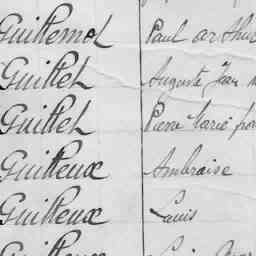 Guillemot Paul arthur
Guillet Auguste Jean
Guillet Pierre Marie
Guilleux Ambroise
Guilleux Louis
Guilleux